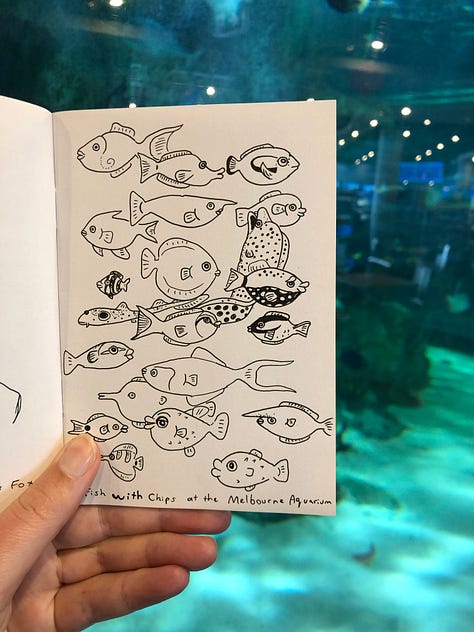 Fox
Fish with Chips at the Melbourne Aquarium